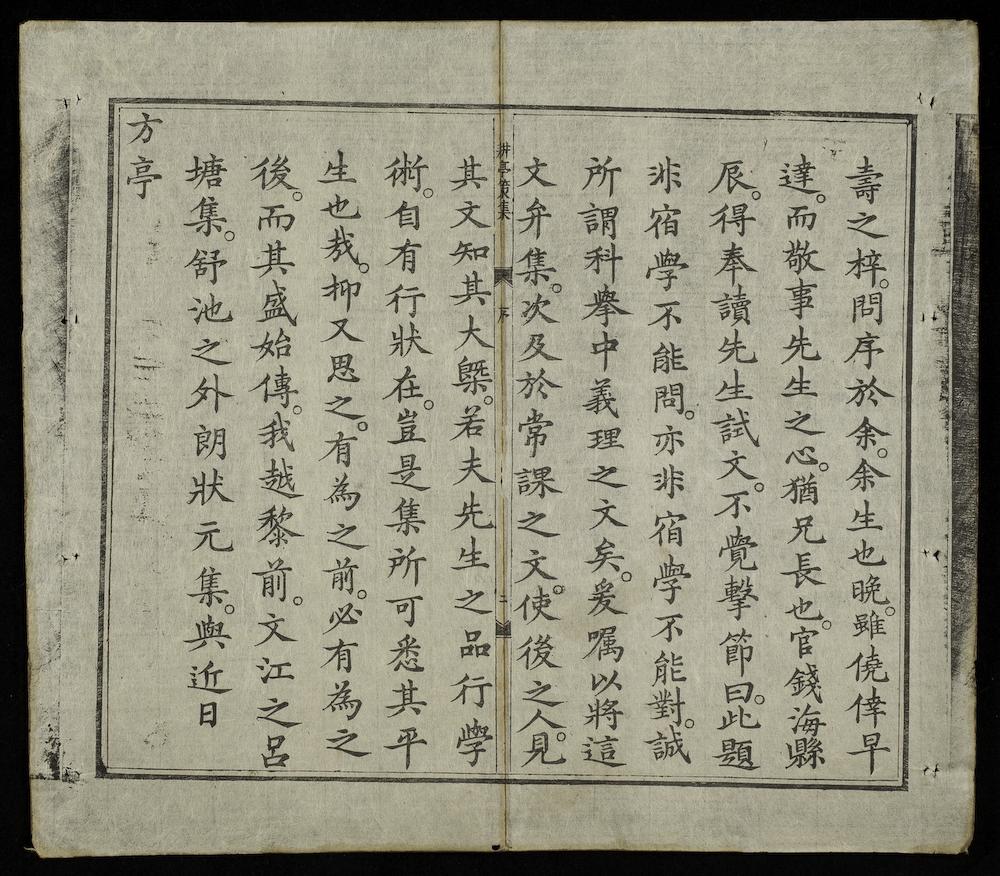 壽之梓。問序於余。余生也晚。雖僥倖早
達。而敬事先生之心。猶兄長也。官錢海縣
辰。得奉讀先生試文。不覺擊節曰。此題
非宿學不能問。亦非宿學不能對。誠
所謂科舉中義理之文矣。爰囑以將這
文弁集。次及於常課之文。使後之人。見
耕亭策集
序
二
其文知其大槩。若夫先生之品行學
術。自有行狀在。豈是集所可悉其平
生也哉。抑又思之。有為之前。必有為之
後。而其盛始傳。我越黎前。文江之呂
塘集。舒池之外朗狀元集。與近日
方亭